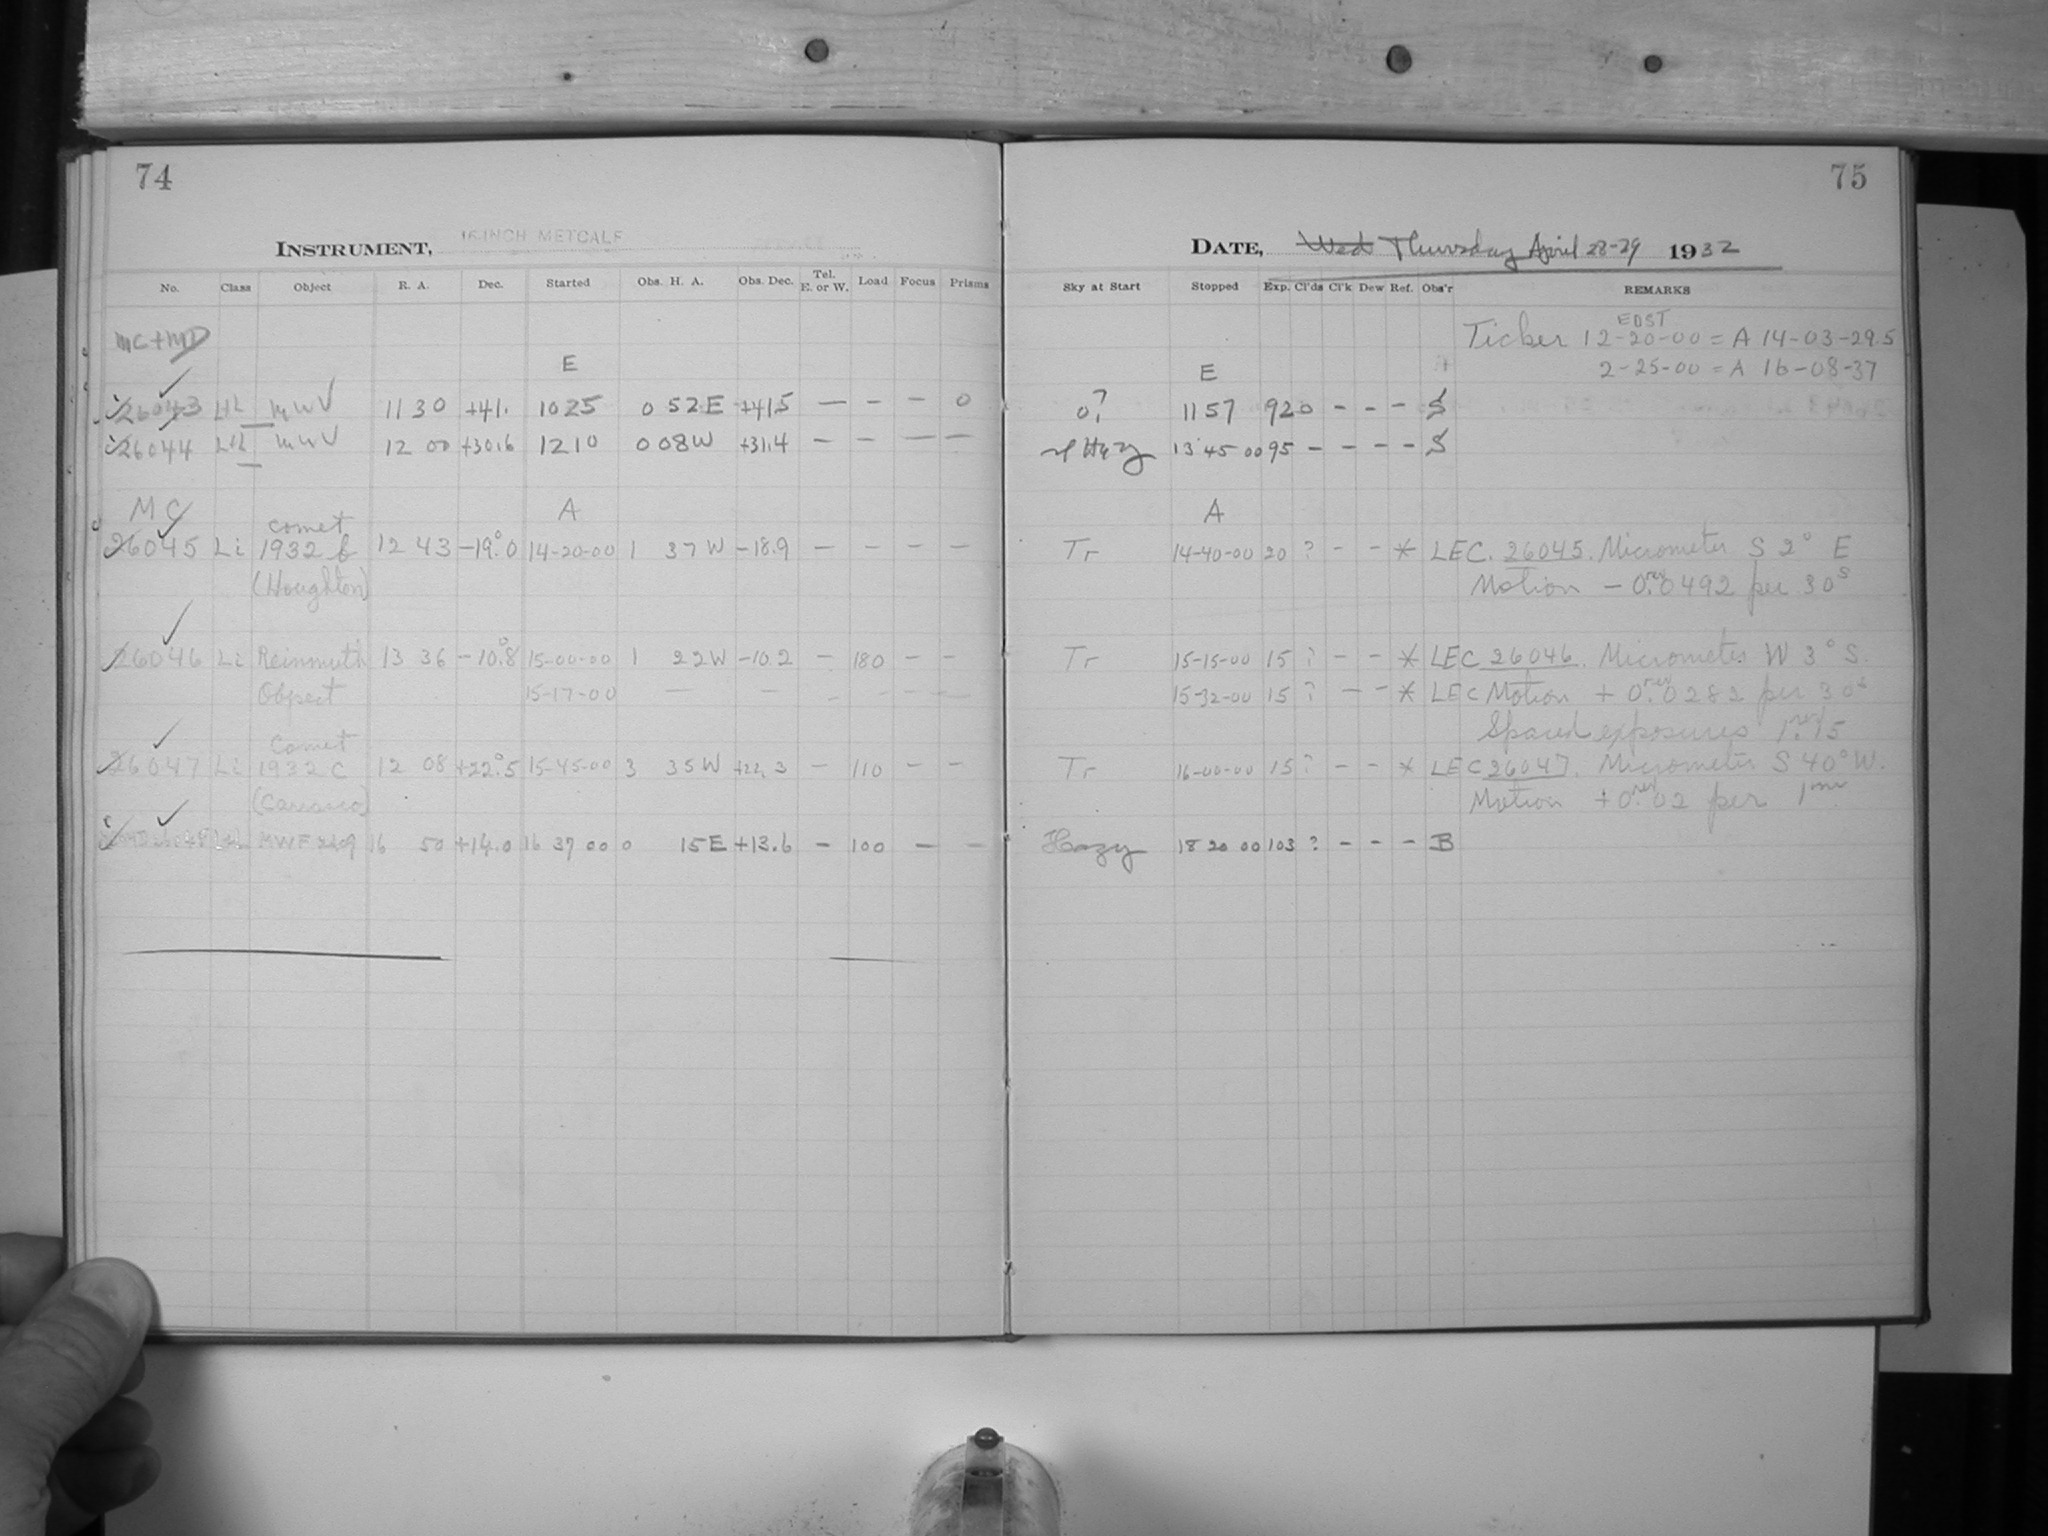 74
INSTRUMENT, 16-INCH METCALF
No. Class Object R. A. Dec. Started Obs. H. A. Obs. Dec. Tel. E. or W. Load Focus Prisms
MC+MD
E
26043 mwV 11 30 +41. 1025 0 52E +41.5 — – – 0
26044 mwV 12 00 +30.6 1210 0 08W +31.4 – – — —
MC A
26045 Li Comet 1932 b 12 43 -19°.0 14-20-00 1 37W -18.9 – – – –
(Houghton)
26046 Li Reinmuth 13 36 -10°.8 15-00-00 1 22W -10.2 – 180 – –
Object 15-17-00 — – – – – —
26047 Li Comet 1932 C 12 08 +22°.5 15-45-00 3 35W +22.3 – 110 – –
(Carrasco)
26048 MWF 2209 16 50 +14.0 16 37 00 0 15E +13.6 – 100 – –
75
DATE, Wed Thursday April 28-29 1932
Sky at Start Stopped Exp. Cl'ds Cl'k Dew Ref. Obs'r REMARKS
EDST
Ticker 12-20-00 = A 14-03-29.5
2-25-00 = A 16-08-37
E
0? 1157 92 0 – – – S
Hazy 13 45 00 95 – – – – S
A
Tr 14-40-00 20 ? – – * LEC. 26045. Micrometer S 2° E
Motion – 0.rev0492 per 30s
Tr 15-15-00 15 ? – – * LEC 26046. Micrometer W 3° S.
15-32-00 15 ? – – * LEC Motion + 0.rev0282 per 30s
Spaced exposures 1.rev15
Tr 16-00-00 15 ? – – * LEC 26047. Micrometer S 40° W.
Motion + 0.rev02 per 1m
Hazy 18 20 00 103 ? – – – B